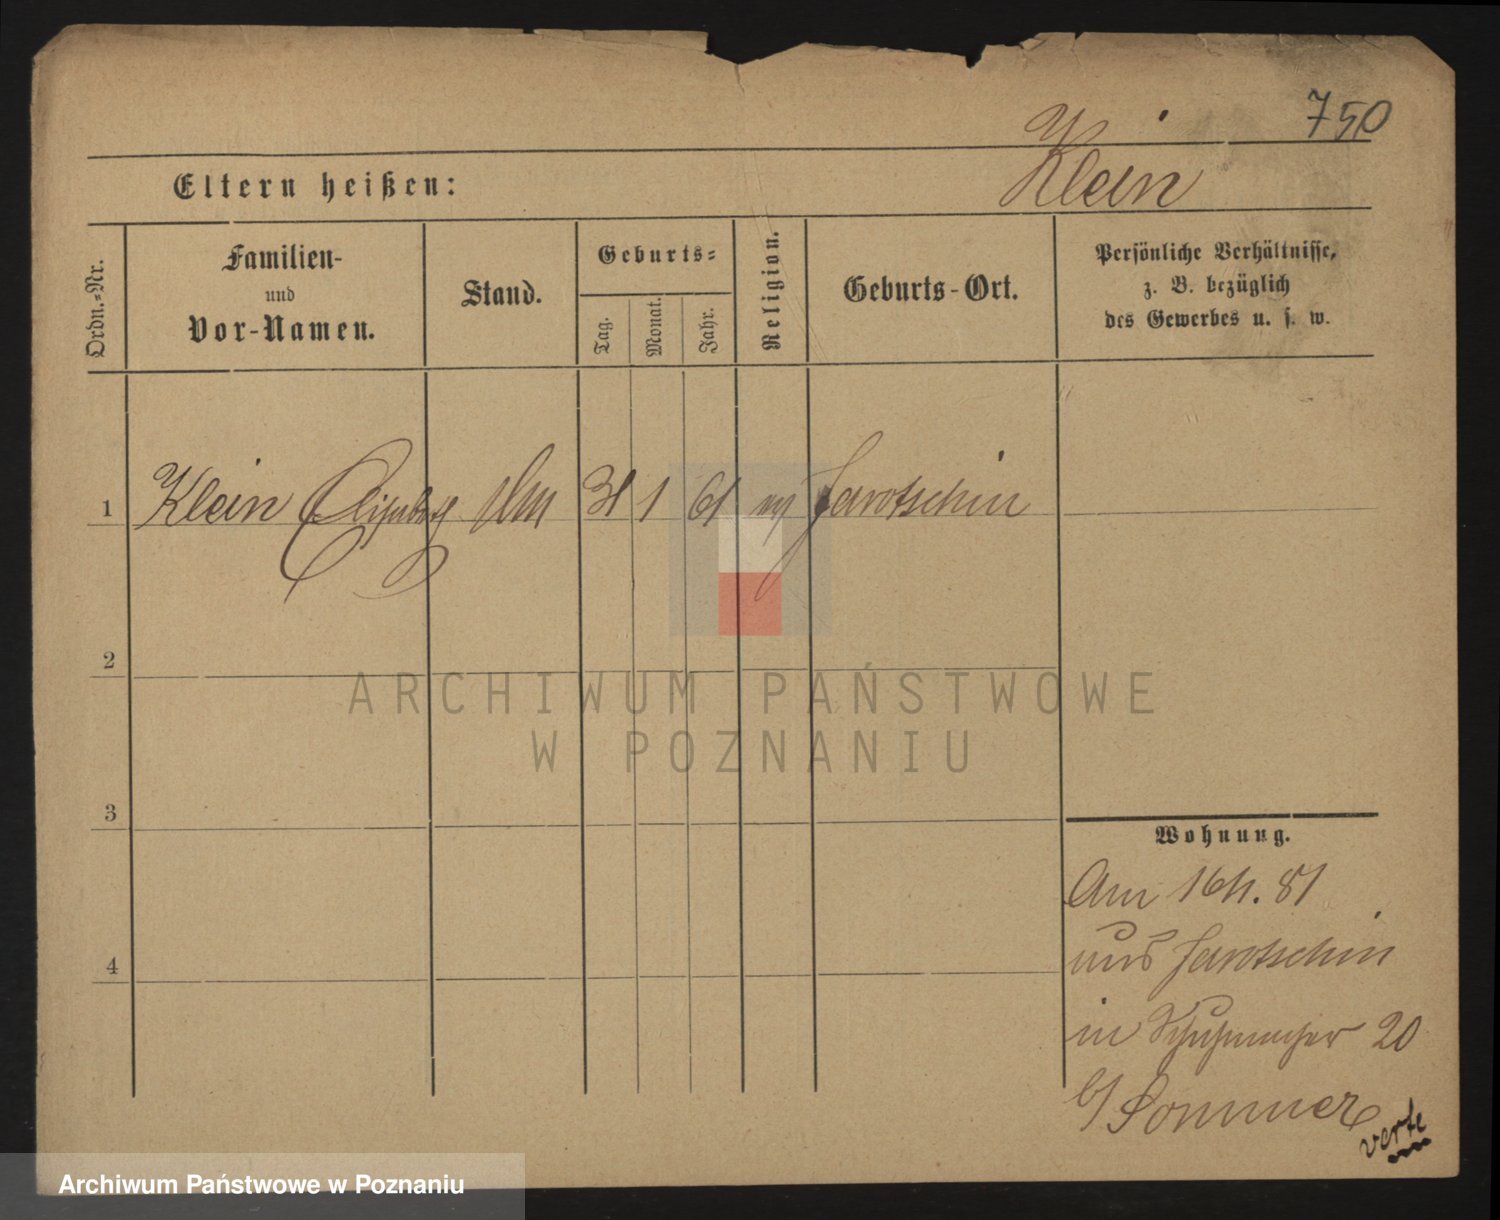 750
Klein
Eltern heißen:
Ordn.-Nr.
Familien-
und
Vor-Namen.
Stand.
Geburts-
Tag.
Monat.
Jahr.
Religion.
Geburts-Ort.
Persönliche Verhältnisse,
z. B. bezüglich
des Gewerbes u. s. w.
1 Klein Elisabeth 31 1 61 Jarotschin
2
3
4
Wohnung.
Am 81
aus Jarotschin
in Schuhmacher 20
b/ Sommer
verte
ARCHIWUM PAŃSTWOWE
W POZNANIU
Archiwum Państwowe w Poznaniu